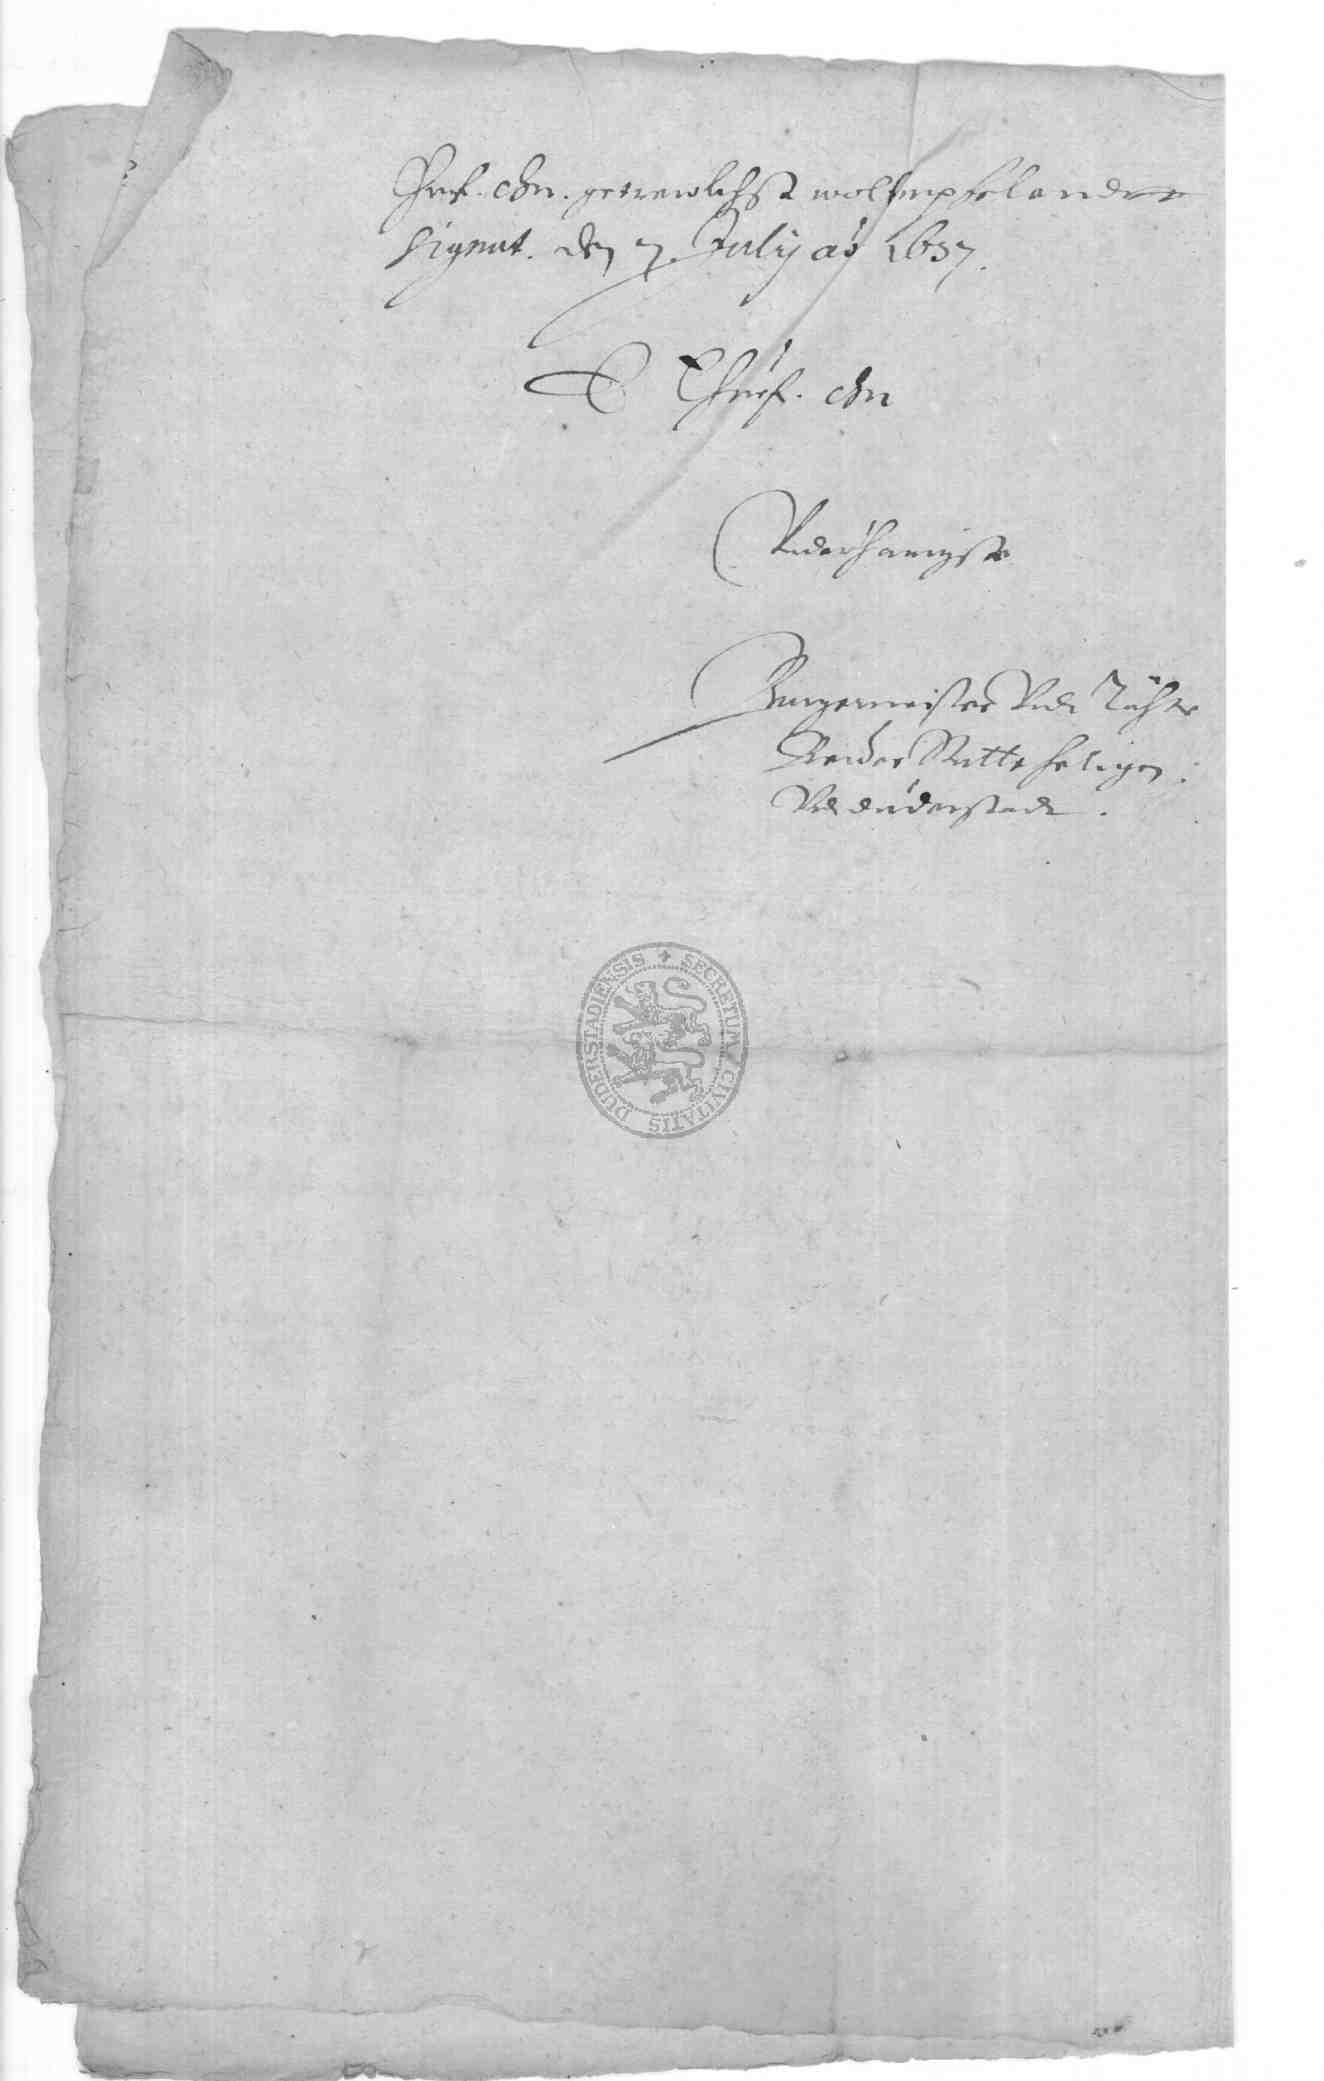 Churf. Gn. getrewlichst wol empfelende
Signat. den 7. July ao 1637.
E Churf. Gn
Underthenigste
Burgermeister Vndt Räthe
Beider Stette Heiligen:
Vndt Duderstadt.
SECRETUM CIVITATIS DUDERSTADIENSIS